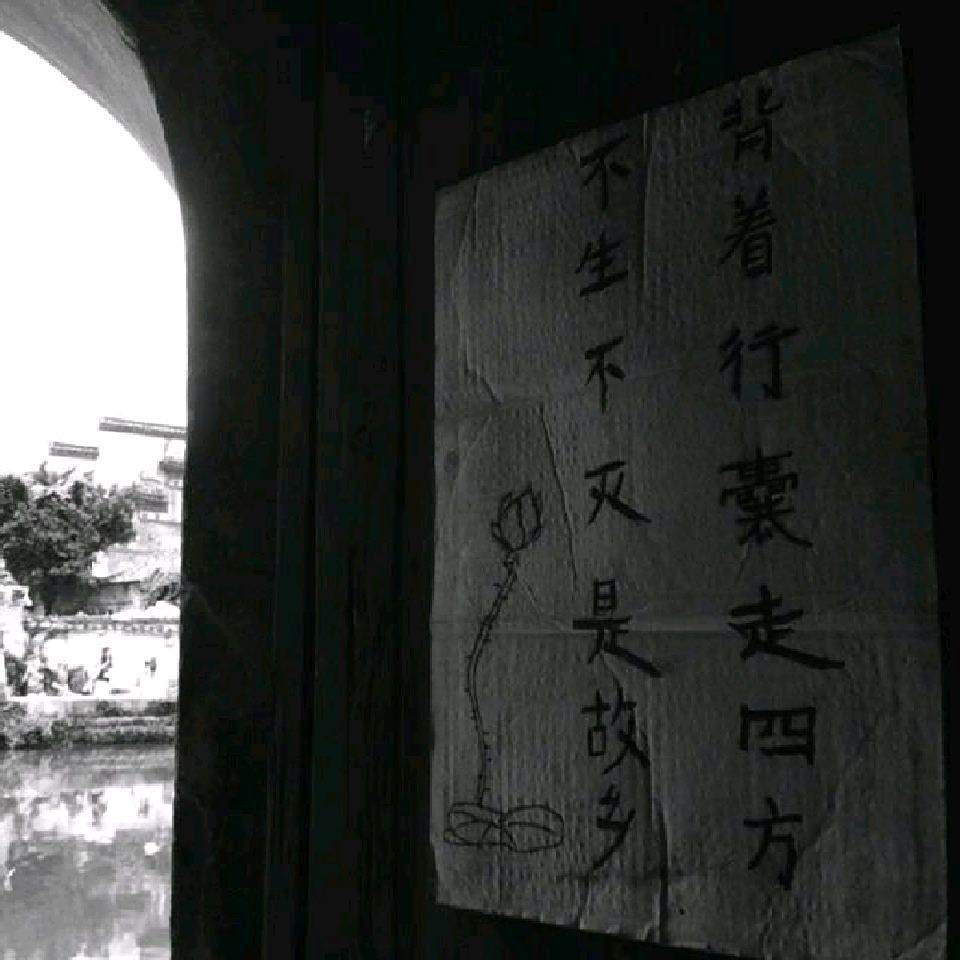 背着行囊走四方
不生不灭是故乡